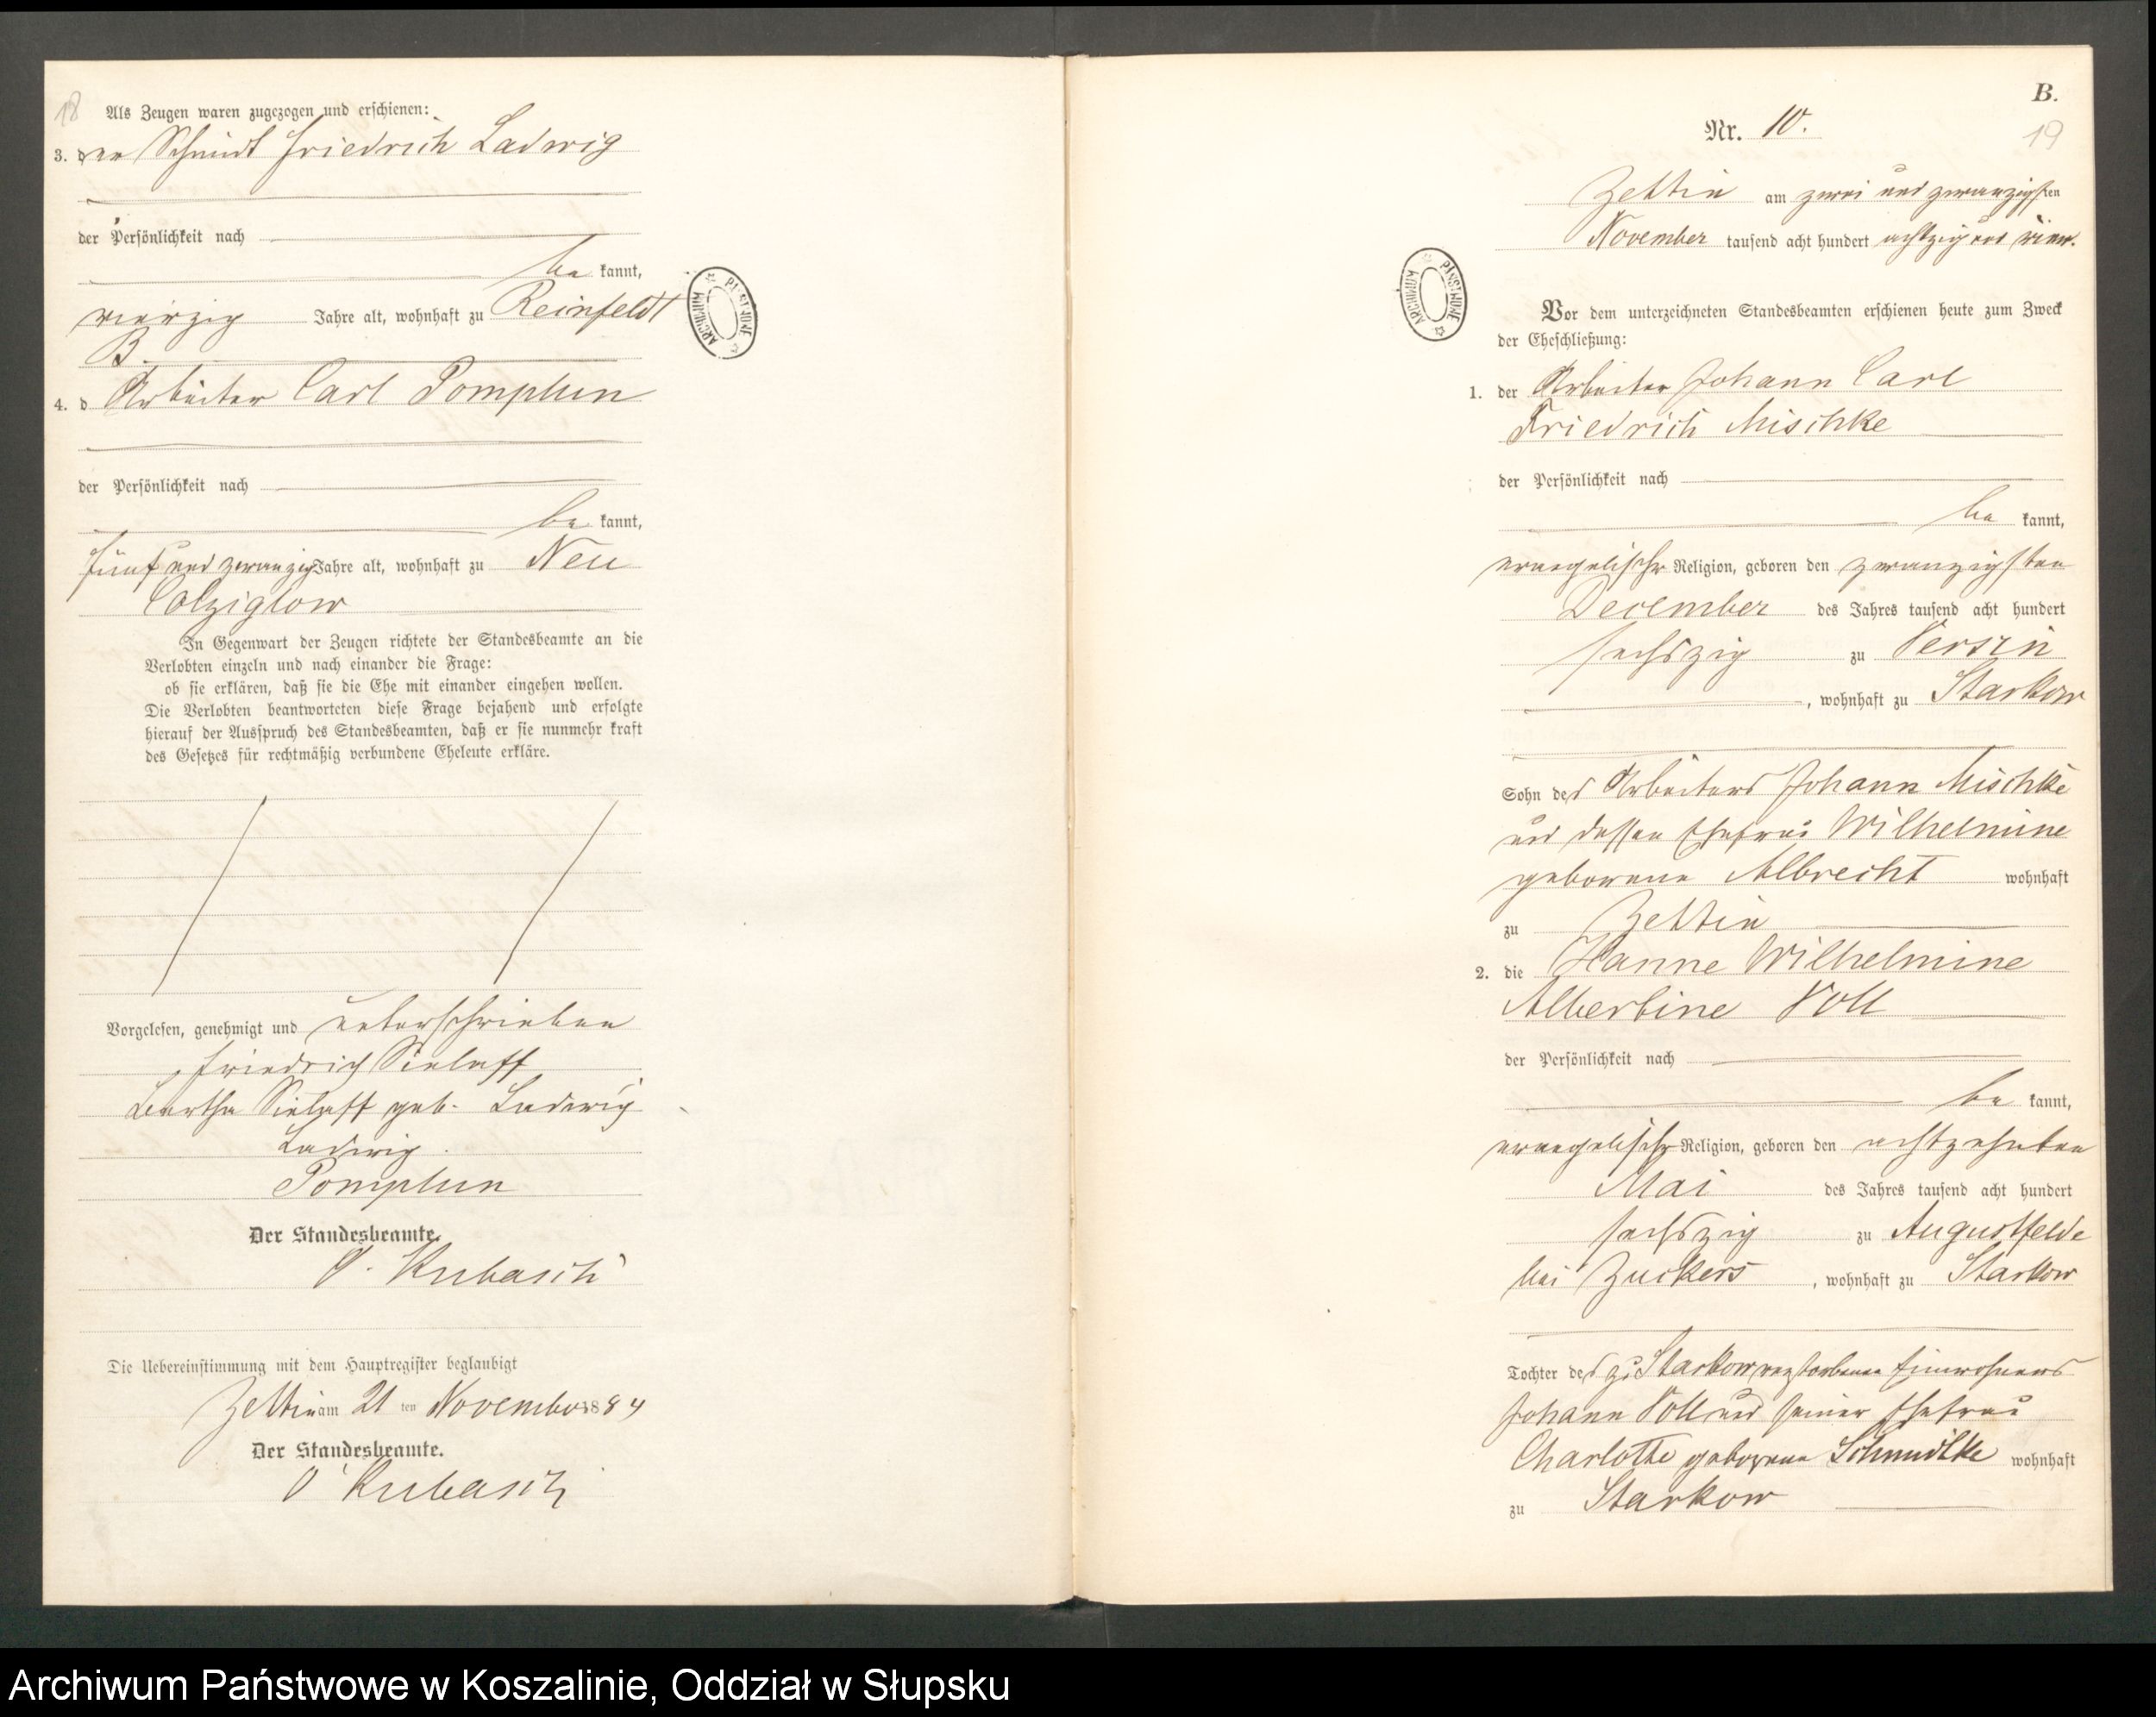 18
Als Zeugen waren zugezogen und erschienen:
3. der Schmidt Friedrich Ladwig
der Persönlichkeit nach
be kannt,
vierzig Jahre alt, wohnhaft zu Reinfeldt
B.
4. d Arbeiter Carl Pomplun
der Persönlichkeit nach
be kannt,
fünf und zwanzig Jahre alt, wohnhaft zu Neu
Colziglow
In Gegenwart der Zeugen richtete der Standesbeamte an die
Verlobten einzeln und nach einander die Frage:
ob sie erklären, daß sie die Ehe mit einander eingehen wollen.
Die Verlobten beantworteten diese Frage bejahend und erfolgte
hierauf der Ausspruch des Standesbeamten, daß er sie nunmehr kraft
des Gesetzes für rechtmäßig verbundene Eheleute erkläre.
Vorgelesen, genehmigt und unterschrieben
Friedrich Sielaff
Bertha Sielaff geb. Ladewig
Ladwig
Pomplun
Der Standesbeamte.
Kubasch
Die Uebereinstimmung mit dem Hauptregister beglaubigt
Zettin am 21 ten November 1884
Der Standesbeamte.
Kubasch
ARCHIWUM PAŃSTWOWE
B.
19
Nr. 10.
Zettin am zwei und zwanzigsten
November tausend acht hundert achtzig und vier.
ARCHIWUM PAŃSTWOWE
Vor dem unterzeichneten Standesbeamten erschienen heute zum Zweck
der Eheschließung:
1. der Arbeiter Johann Carl
Friedrich Mischke
der Persönlichkeit nach
be kannt,
evangelischer Religion, geboren den zwanzigsten
December des Jahres tausend acht hundert
sechszig zu Versin
, wohnhaft zu Starkow
Sohn des Arbeiters Johann Mischke
und dessen Ehefrau Wilhelmine
geborene Albrecht wohnhaft
zu Zettin
2. die Hanne Wilhelmine
Albertine Voll
der Persönlichkeit nach
be kannt,
evangelischer Religion, geboren den achtzehnten
Mai des Jahres tausend acht hundert
sechszig zu Augustfelde
bei Zuckers, wohnhaft zu Starkow
Tochter des zu Starkow verstorbenen Einwohners
Johann Voll und seiner Ehefrau
Charlotte geborene Schmidtke wohnhaft
zu Starkow
Archiwum Państwowe w Koszalinie, Oddział w Słupsku